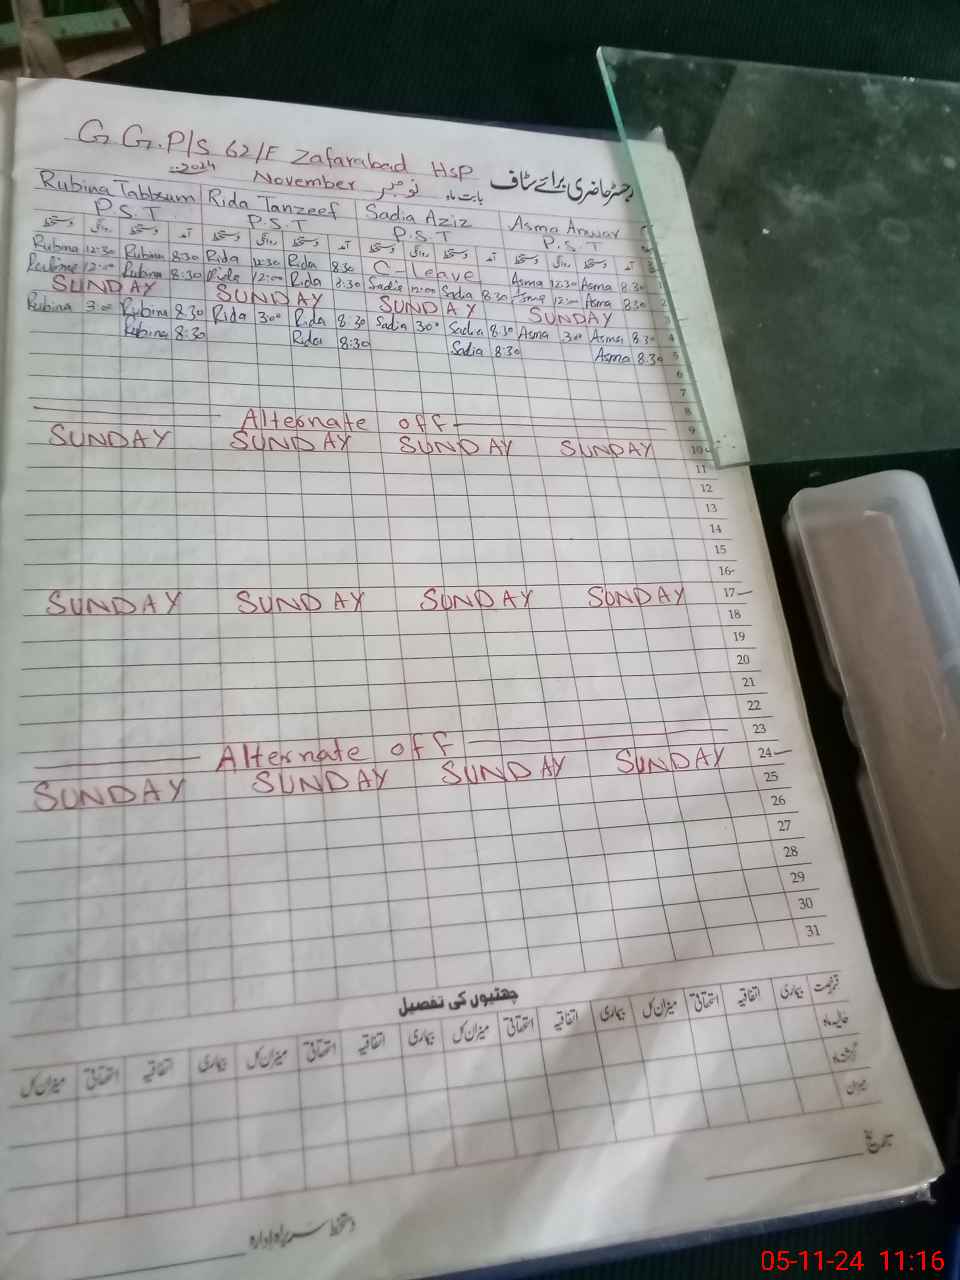 G.G.P/S 62/F Zafarabad HSP
رجسٹر حاضری برائے سٹاف
2024 November نومبر بابت ماہ
Rubina Tabbsum Rida Tanzeef Sadia Aziz Asma Anwar
P.S.T P.S.T P.S.T P.S.T
Rubina 12:30 Rubina 8:30 Rida 12:30 Rida 8:30 C-Leave Asma 12:30 Asma 8:30 1
Rubina 12:00 Rubina 8:30 Rida 12:00 Rida 8:30 Sadia 12:00 Sadia 8:30 Asma 12:00 Asma 8:30 2
SUNDAY SUNDAY SUNDAY SUNDAY
Rubina 3:00 Rubina 8:30 Rida 3:00 Rida 8:30 Sadia 3:00 Sadia 8:30 Asma 3:00 Asma 8:30 4
Rubina 8:30 Rida 8:30 Sadia 8:30 Asma 8:30 5
6
7
8
Alternate off 9
SUNDAY SUNDAY SUNDAY SUNDAY 10
11
12
13
14
15
16
SUNDAY SUNDAY SUNDAY SUNDAY 17
18
19
20
21
22
Alternate off 23
SUNDAY SUNDAY SUNDAY SUNDAY 24
25
26
27
28
29
30
31
چھٹیوں کی تفصیل
قسم رخصت بیماری اتفاقیہ استحقاقی میزان کل بیماری اتفاقیہ استحقاقی میزان کل بیماری اتفاقیہ استحقاقی میزان کل بیماری اتفاقیہ استحقاقی میزان کل
حالیہ ماہ
گزشتہ ماہ
میزان
تاریخ
دستخط سربراہ ادارہ
05-11-24 11:16